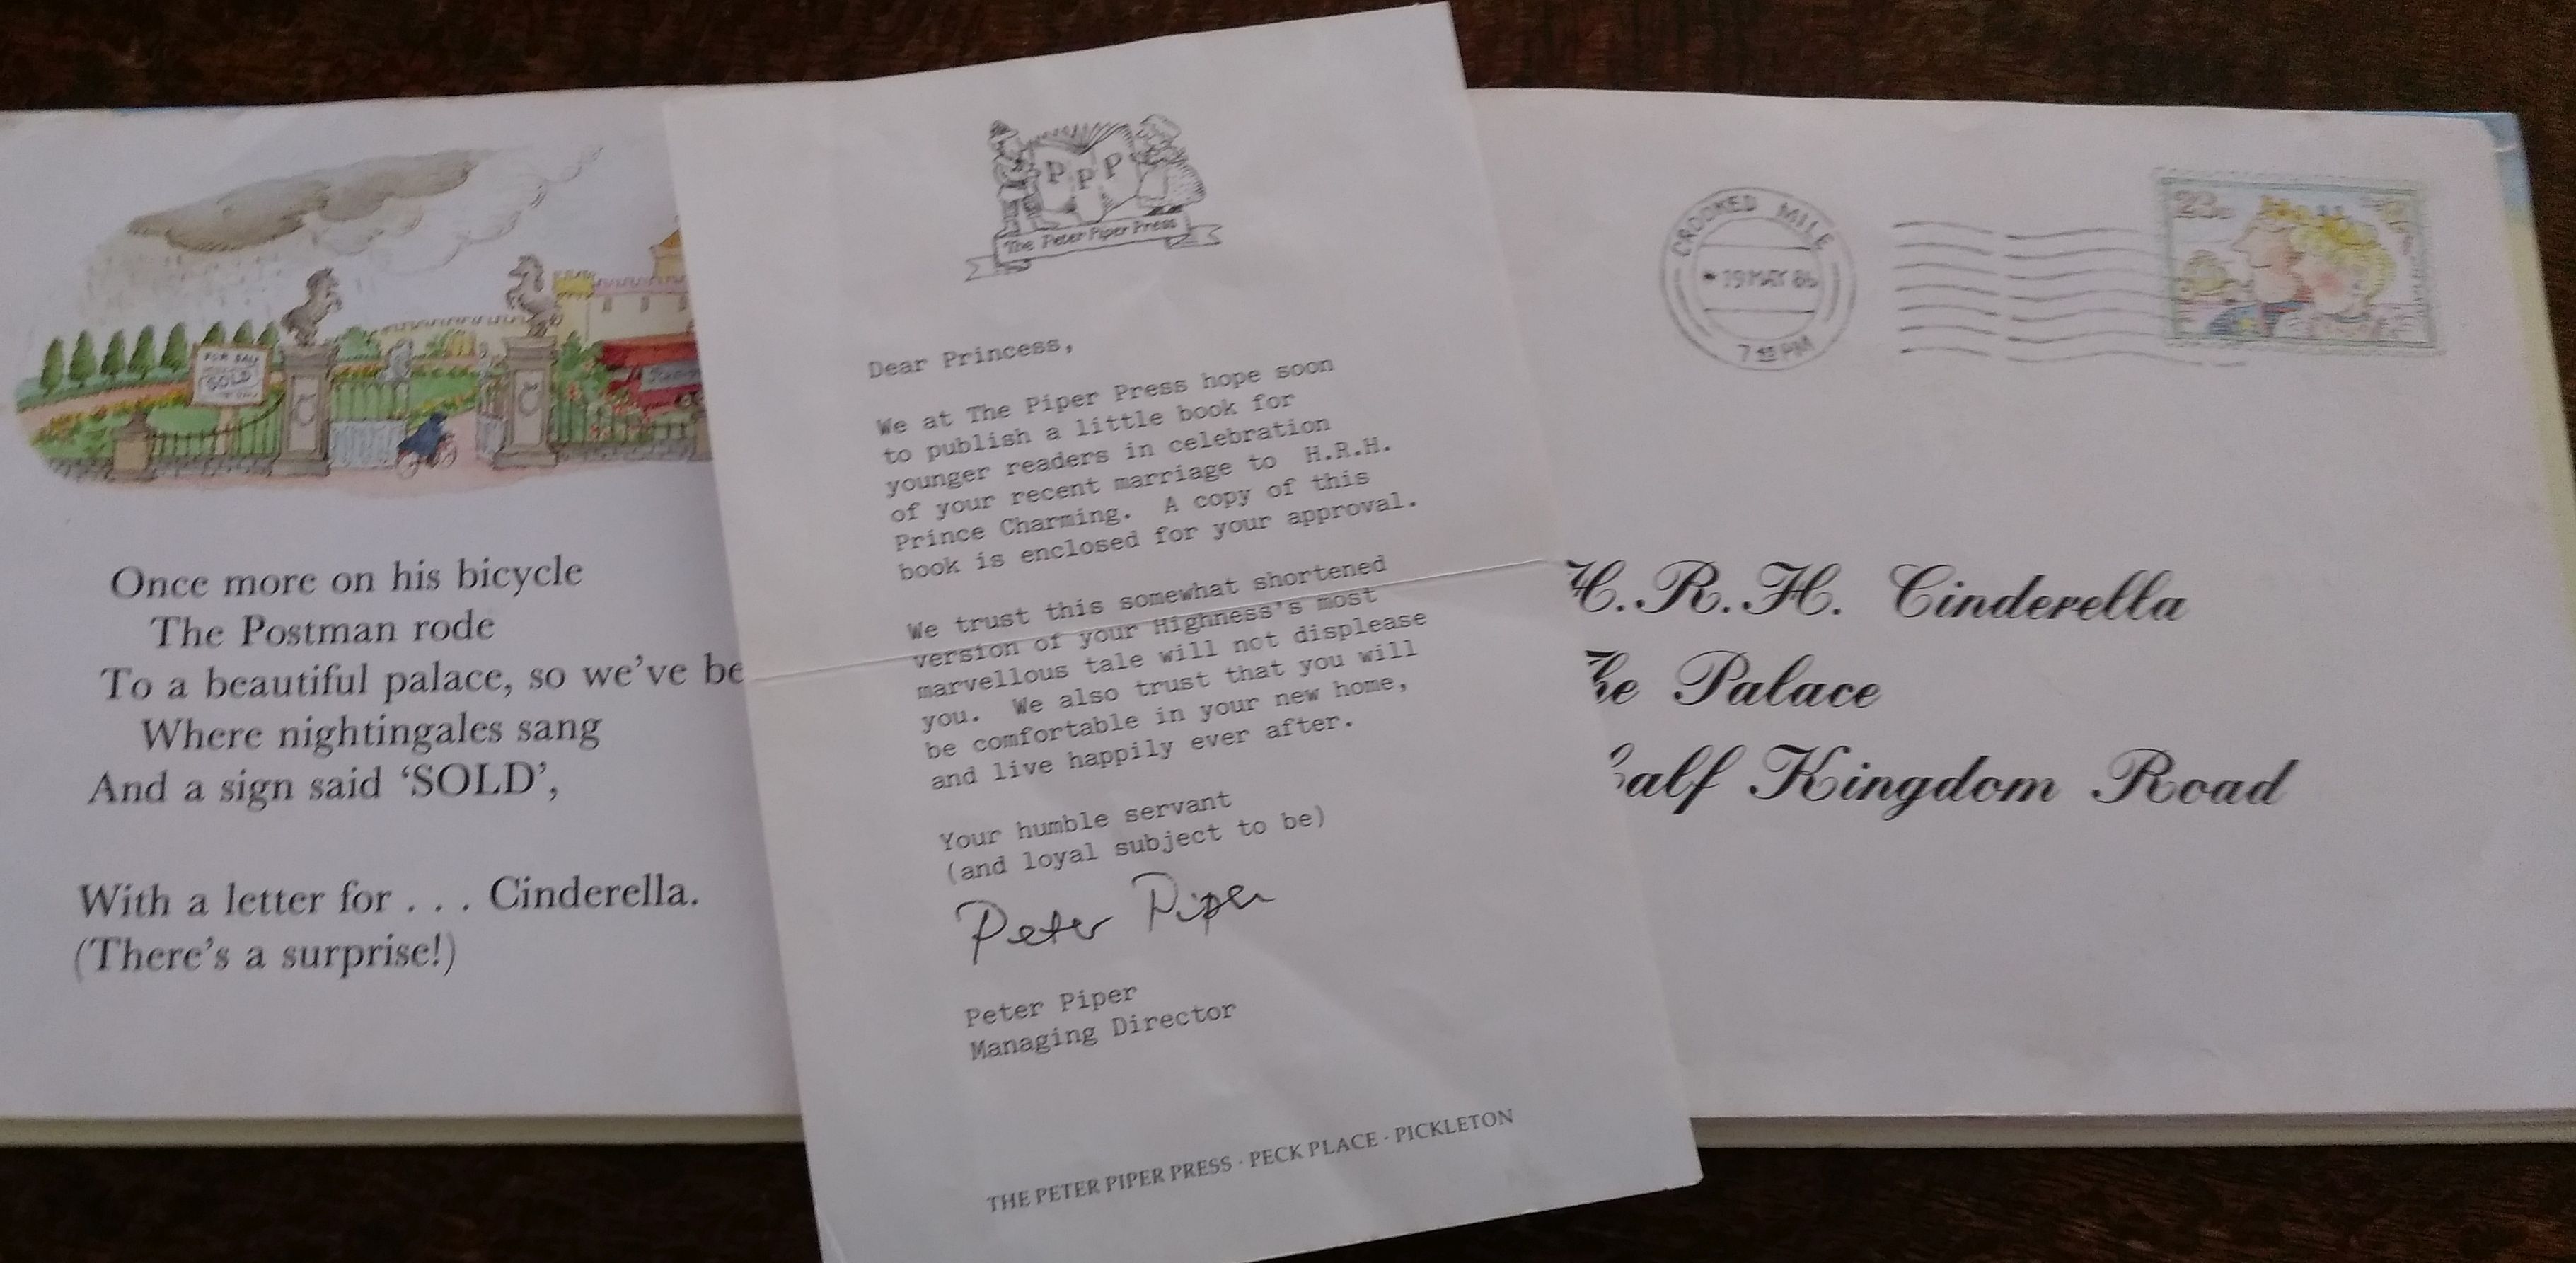 FOR SALE
SOLD
Once more on his bicycle
The Postman rode
To a beautiful palace, so we've be
Where nightingales sang
And a sign said 'SOLD',
With a letter for . . . Cinderella.
(There's a surprise!)
P P P
The Peter Piper Press
Dear Princess,
We at The Piper Press hope soon
to publish a little book for
younger readers in celebration
of your recent marriage to H.R.H.
Prince Charming. A copy of this
book is enclosed for your approval.
We trust this somewhat shortened
version of your Highness's most
marvellous tale will not displease
you. We also trust that you will
be comfortable in your new home,
and live happily ever after.
Your humble servant
(and loyal subject to be)
Peter Piper
Peter Piper
Managing Director
THE PETER PIPER PRESS · PECK PLACE · PICKLETON
CROOKED MILE
19 MAY 86
7 15 PM
H.R.H. Cinderella
he Palace
alf Kingdom Road